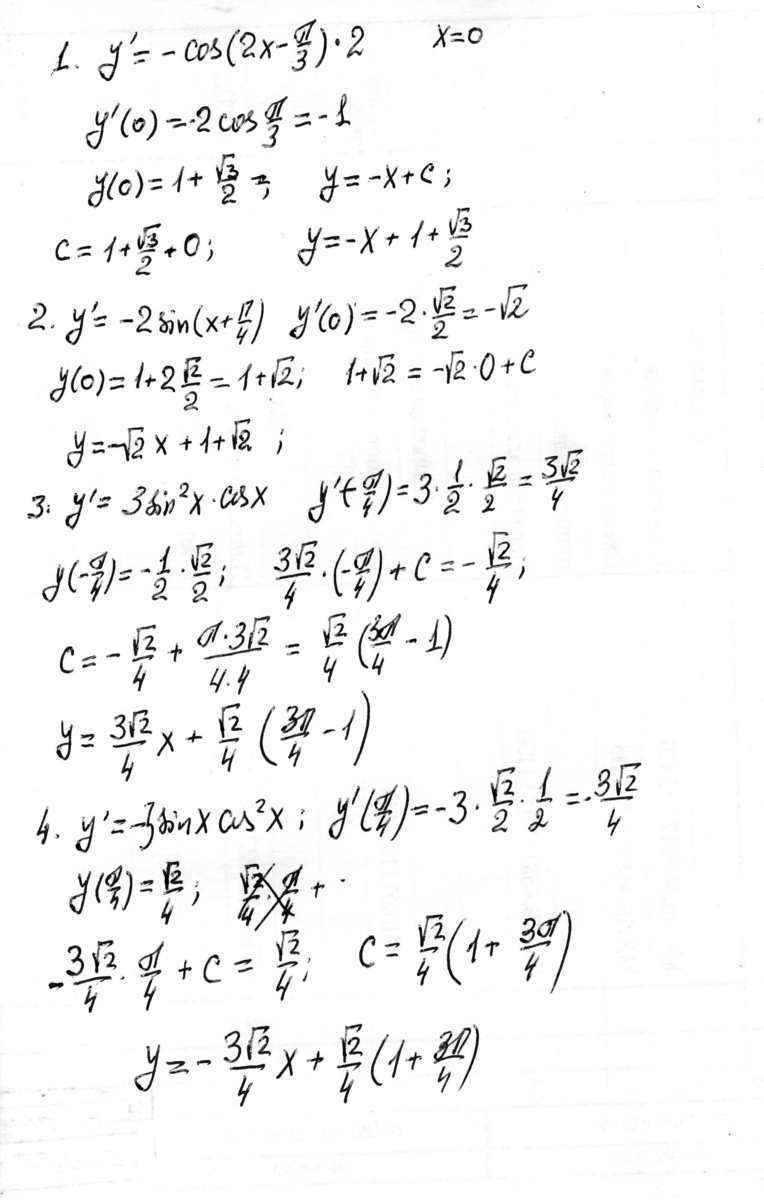 1. y' = - cos(2x - π/3) · 2    x=0
y'(0) = -2 cos π/3 = -1
y(0) = 1 + √3/2 ; y = -x + c ;
c = 1 + √3/2 + 0 ; y = -x + 1 + √3/2
2. y' = -2 sin(x + π/4) y'(0) = -2 · √2/2 = -√2
y(0) = 1 + 2 √2/2 = 1 + √2 ; 1 + √2 = -√2 · 0 + c
y = -√2 x + 1 + √2 ;
3. y' = 3 sin²x · cos x y'(-π/4) = 3 · 1/2 · √2/2 = 3√2/4
y(-π/4) = -1/2 · √2/2 ; 3√2/4 · (-π/4) + c = - √2/4 ;
c = - √2/4 + π·3√2/4·4 = √2/4 (3π/4 - 1)
y = 3√2/4 x + √2/4 (3π/4 - 1)
4. y' = -3 sin x cos²x ; y'(π/4) = -3 · √2/2 · 1/2 = - 3√2/4
y(π/4) = √2/4 ; √2/4 · π/4 + ·
- 3√2/4 · π/4 + c = √2/4 ; c = √2/4 (1 + 3π/4)
y = - 3√2/4 x + √2/4 (1 + 3π/4)